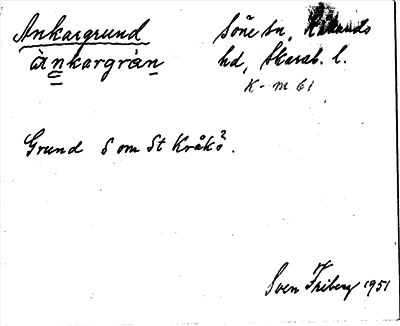 Ankargrund Söne sn, Kållands
ànkargràn hd, Skarab. l.
K-m 61
Grund S om St Kråkö?.
Sven Friberg 1951